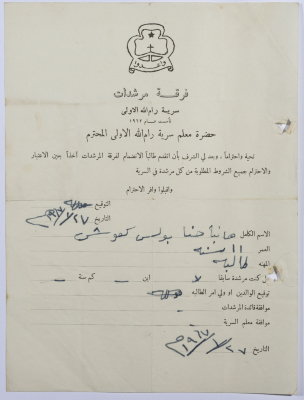 واعدوا
فرقة مرشدات
سرية رام الله الاولى
تأسست عام ١٩٦٢
حضرة معلم سرية رام الله الاولى المحترم
تحية واحتراما ، وبعد لي الشرف بأن اتقدم طالباً الانضمام لفرقة المرشدات آخذاً بعين الاعتبار
والاحترام جميع الشروط المطلوبة من كل مرشدة في السرية
واقبلوا وافر الاحترام
التوقيع
التاريخ ٢٧
الاسم الكامل حنا بولس
العمر ١١ سنة
المهنة طالبة
هل كنت مرشدة سابقا لا اين - كم سنة -
توقيع الوالدين او ولي امر الطالبة
موافقة قائدة المرشدات
موافقة معلم السرية
التاريخ ٢٧